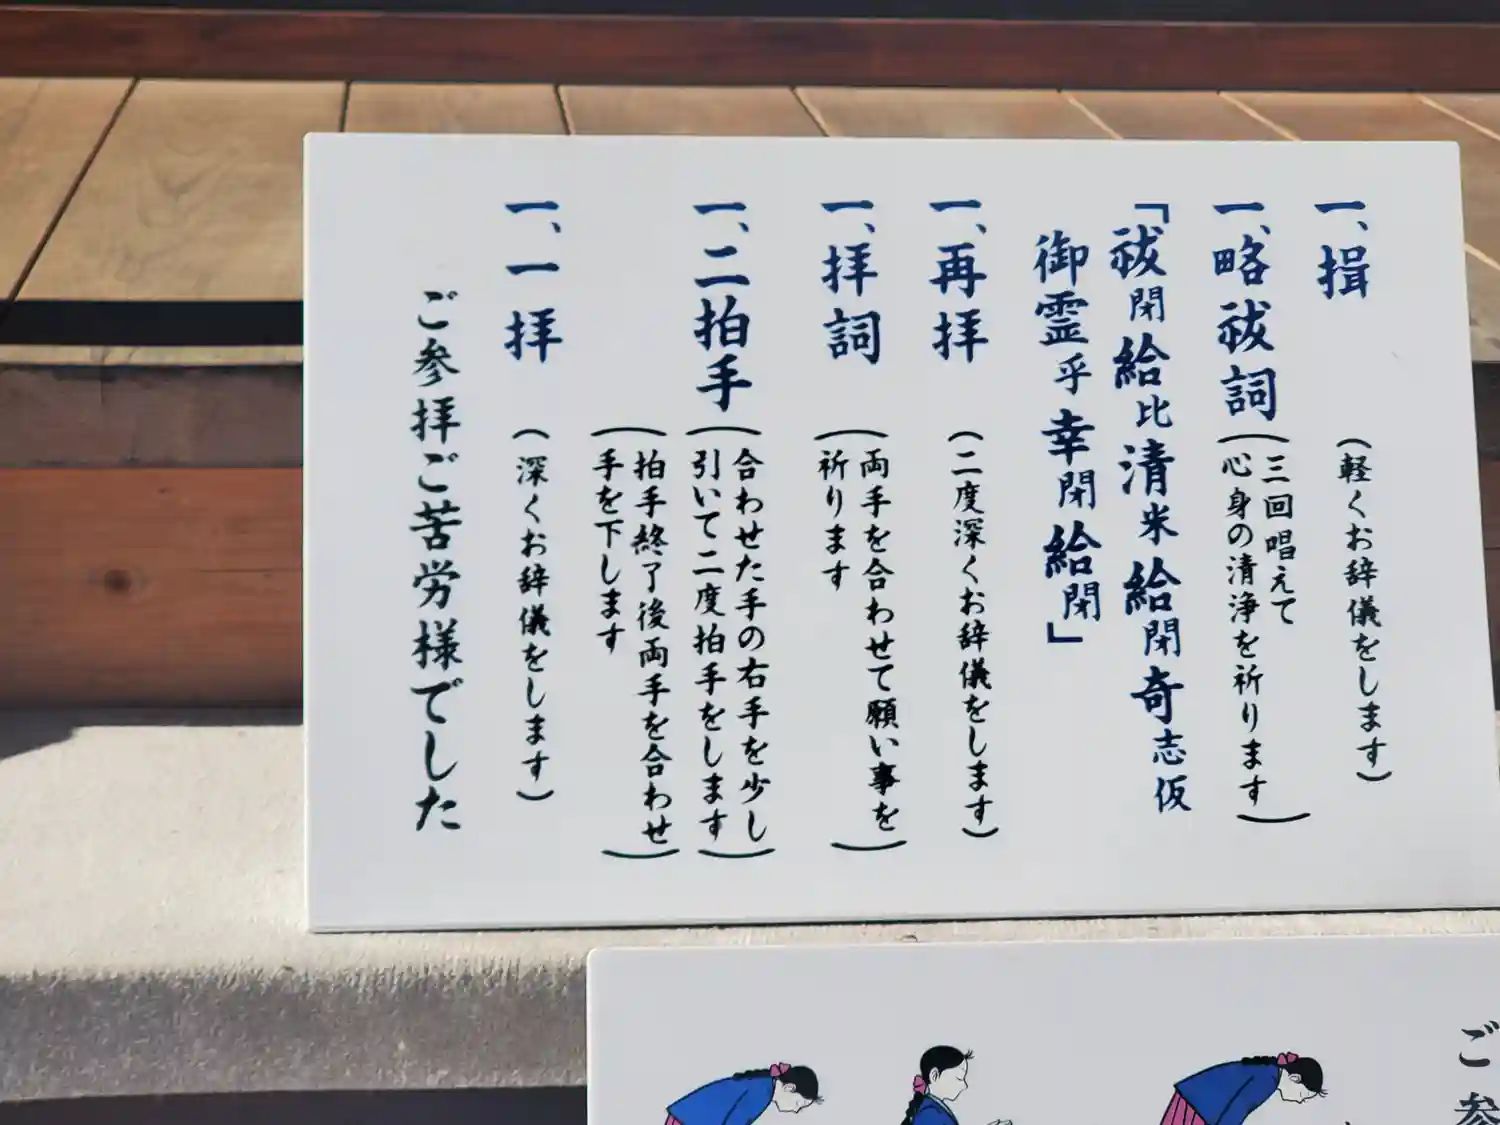 一、揖（軽くお辞儀をします）
一、略祓詞（三回唱えて
心身の清浄を祈ります）
「祓閉給比清米給閉奇志仮
御霊乎幸閉給閉」
一、再拝（二度深くお辞儀をします）
一、拝詞（両手を合わせて願い事を
祈ります）
一、二拍手（合わせた手の右手を少し
引いて二度拍手をします）
（拍手終了後両手を合わせ
手を下します）
一、一拝（深くお辞儀をします）
ご参拝ご苦労様でした
ご参